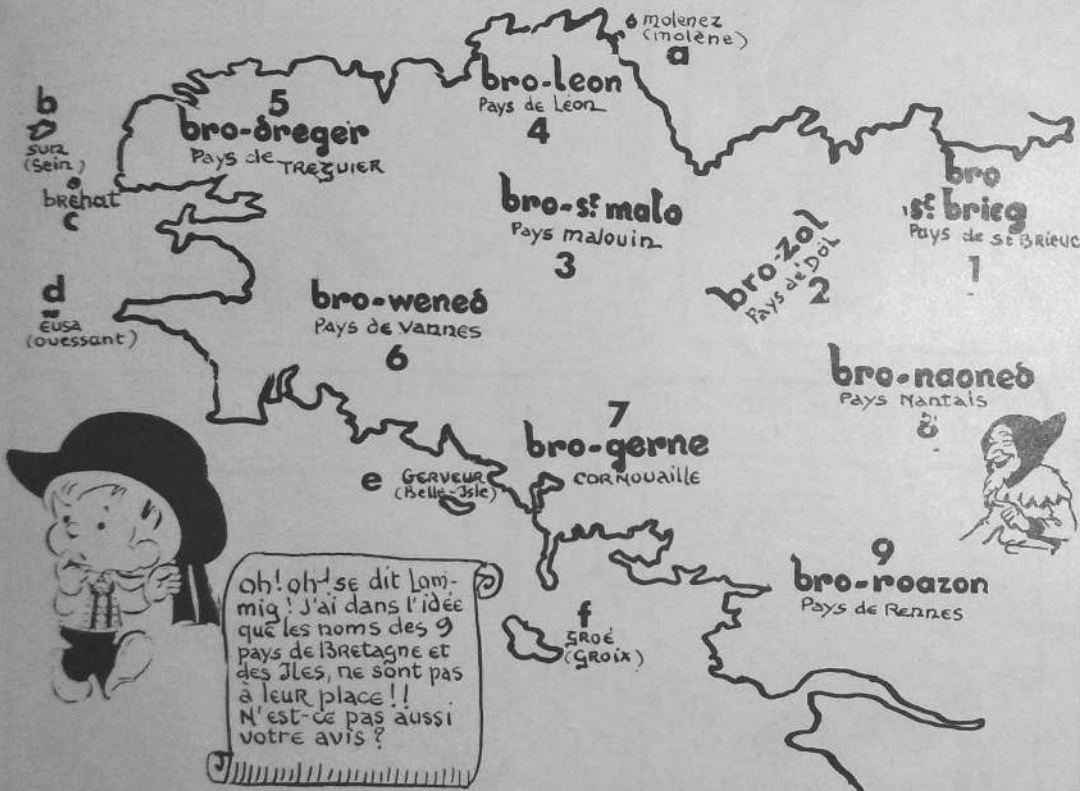 molenez
(molène)
a
bro-leon
Pays de Léon
4
b
sun
(Sein)
5
bro-dreger
Pays de TREGUIER
bréhat
c
bro-st malo
Pays malouin
3
bro-zol
Pays de Dol
2
bro
st brieg
Pays de St BRIEUC
1
d
EUSA
(ouessant)
bro-wened
Pays de Vannes
6
bro-naoned
Pays Nantais
8
7
bro-gerne
CORNOUAILLE
e GERVEUR
(Belle-Isle)
9
bro-roazon
Pays de Rennes
f
GROÉ
(GROIX)
oh! oh! se dit Lom-
mig! J'ai dans l'idée
que les noms des 9
pays de BRetagne et
des Iles, ne sont pas
à leur place!!
N'est-ce pas aussi
votre avis?